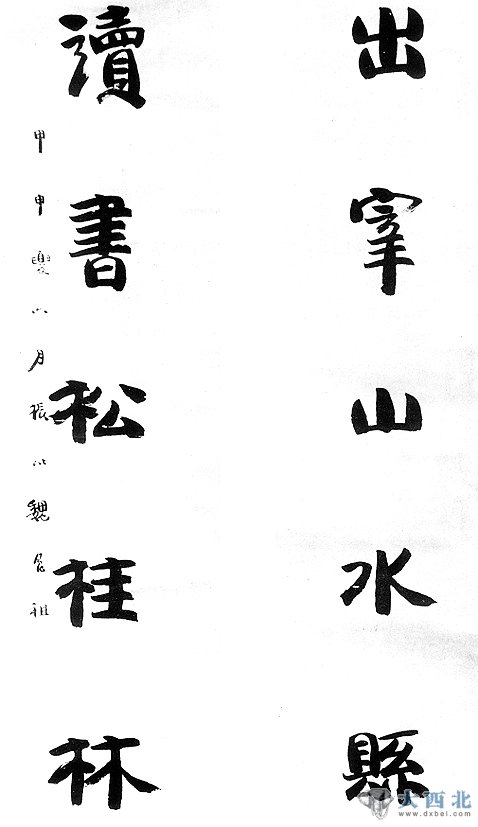 出宰山水縣
讀書松桂林
甲申夏六月振以魏祖
大西北
www.dxbei.com